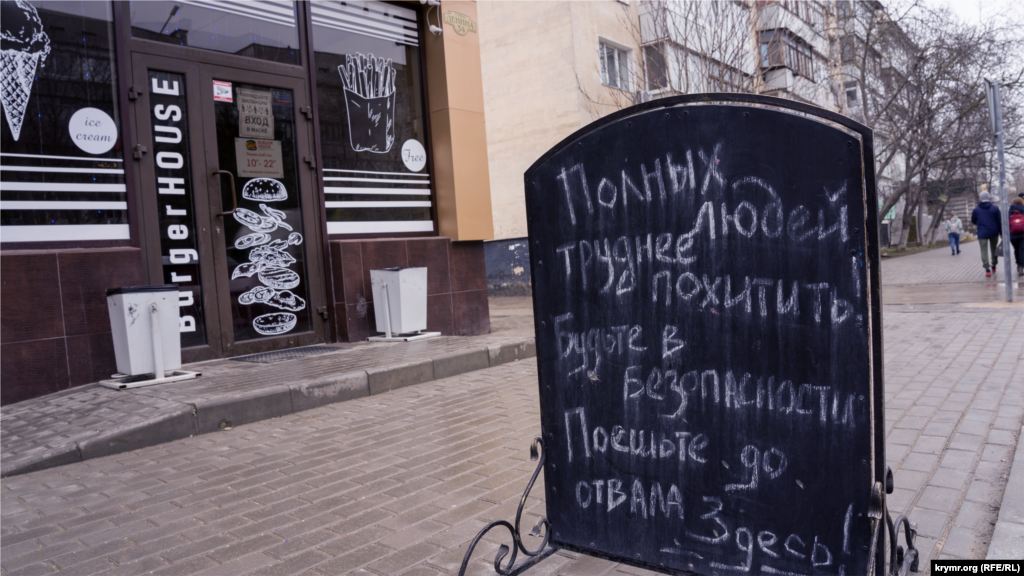 Burger HOUSE
ice
cream
ВХОД
10°° 22°°
Free
Полных
людей
труднее
похитить!
Будьте в
безопасности.
Поешьте до
отвала
Здесь!
krymr.org (RFE/RL)